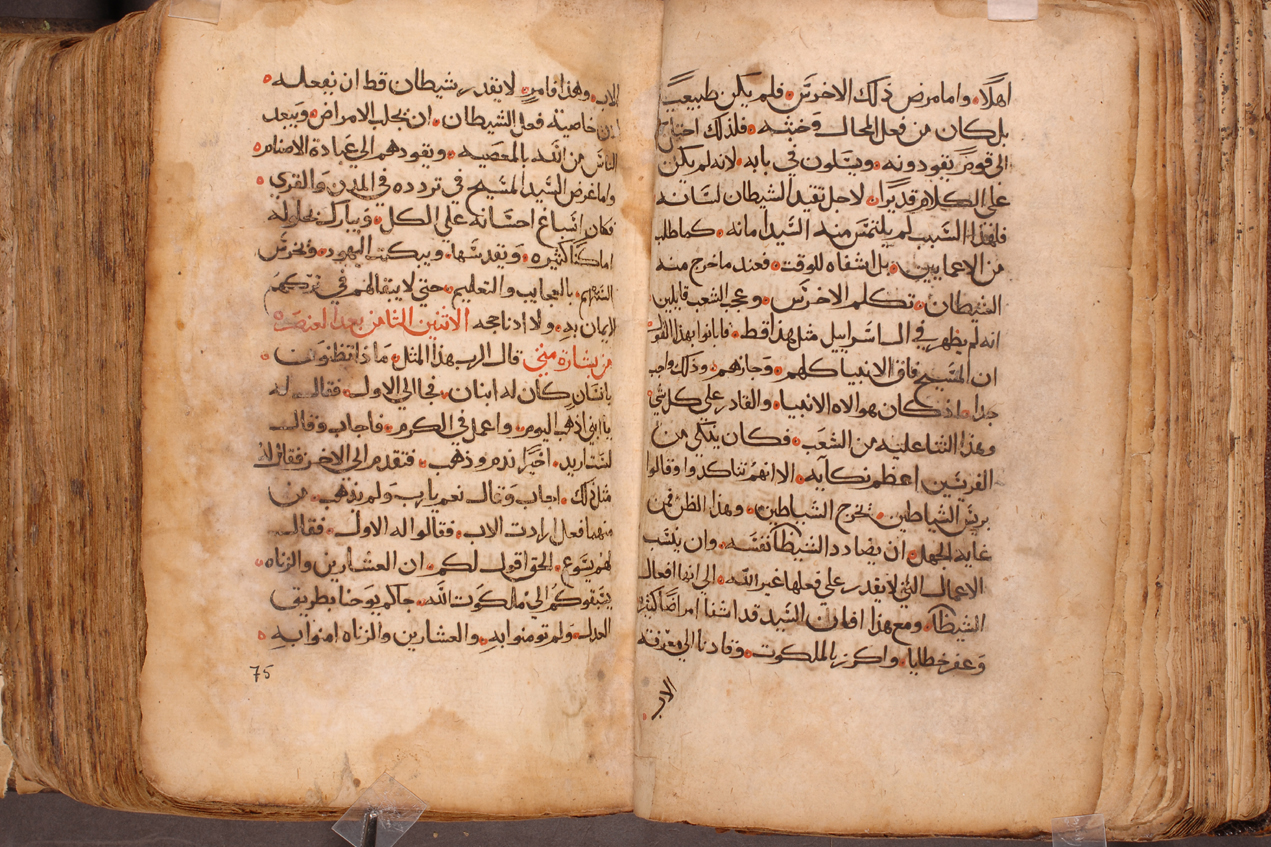 اهلاً، واما مرض ذلك الاخرس، فلم يكن طبيعيً
بل كان من فعل المحال وخبثه، فلذلك احتاج
الى قوم يقودونه، ويسلون في بابه، لانه لم يكن
على الكلام قديراً، لاجل تقيد الشيطان لسانه
فلهذا السبب لم يلتمس منه السيد امانه، كما طلب
من الاعمايين، بل اشفاه للوقت، فعند ما خرج منه
الشيطان، تكلم الاخرس، وعجب الشعب قايلين
انه لم يظهر في ال اسراييل مثل هذا قط، فابانوا بهذا القول
ان المسيح فاق الانبيا كلهم، وجازهم، وذلك واجب
جدا، اذ كان هو الاه الانبيا، والقادر على كل شي
وهذا الثنا عليه من الشعب، فكان ينكى من
الفريسين اعظم نكايه، الا انهم تناكدوا وقالوا
بريس الشياطين، يخرج الشياطين، وهذا الظن فمن
غاية الجهل، ان يضادد الشيطان نفسه، وان ينسب
الاعمال التي لا يقدر على فعلها غير الله، الى انها افعال
الشيطان، ومع هذا افان السيد قد اشفا امراضاً كثيره
وغفر خطايا، واكرز بالملكوت، وقادنا الى معرفة
الاب
الاب، وهذا فامرٍ، لا يقدر شيطان قط ان يفعله
لان خاصية فعل الشيطان، ان يجلب الامراض، ويبعد
الناس من الله بالمعصيه، ويقودهم الى عبادة الاصنام
واما غرض السيد المسيح في تردده في المدن والقرى
فكان اسباغ احسانه على الكل، ويبارك بحلوله
اماكناً كثيره، ويقدسها، ويبكت اليهود، ويخرس
السنتهم، بالعجايب والتعليم، حتى لا يبقا لهم في تركهم
الايمان به، ولا ادنا حجه الاثنين الثامن بعد العنصره
من بشارة متى قال الرب هذا المثل، ماذا تظنون
بانسانٍ كان له ابنان، فجا الى الاول، فقال له
يا ابني اذهب اليوم، واعمل في الكرم، فاجاب وقال
لست اريد، اخيراً ندم وذهب، فتقدم الى الاخر فقال له
مثل ذلك، اجاب وقال نعم يا رب ولم يذهب، من
منهما فعل ارادت الاب، فقالوا له الاول، فقال
لهم يسوع، الحق اقول لكم، ان العشارين والزناه
يسبقوكم الى ملكوت الله، جاكم يوحنا بطريق
العدل، ولم تومنوا به، والعشارين والزناه امنوا به
75